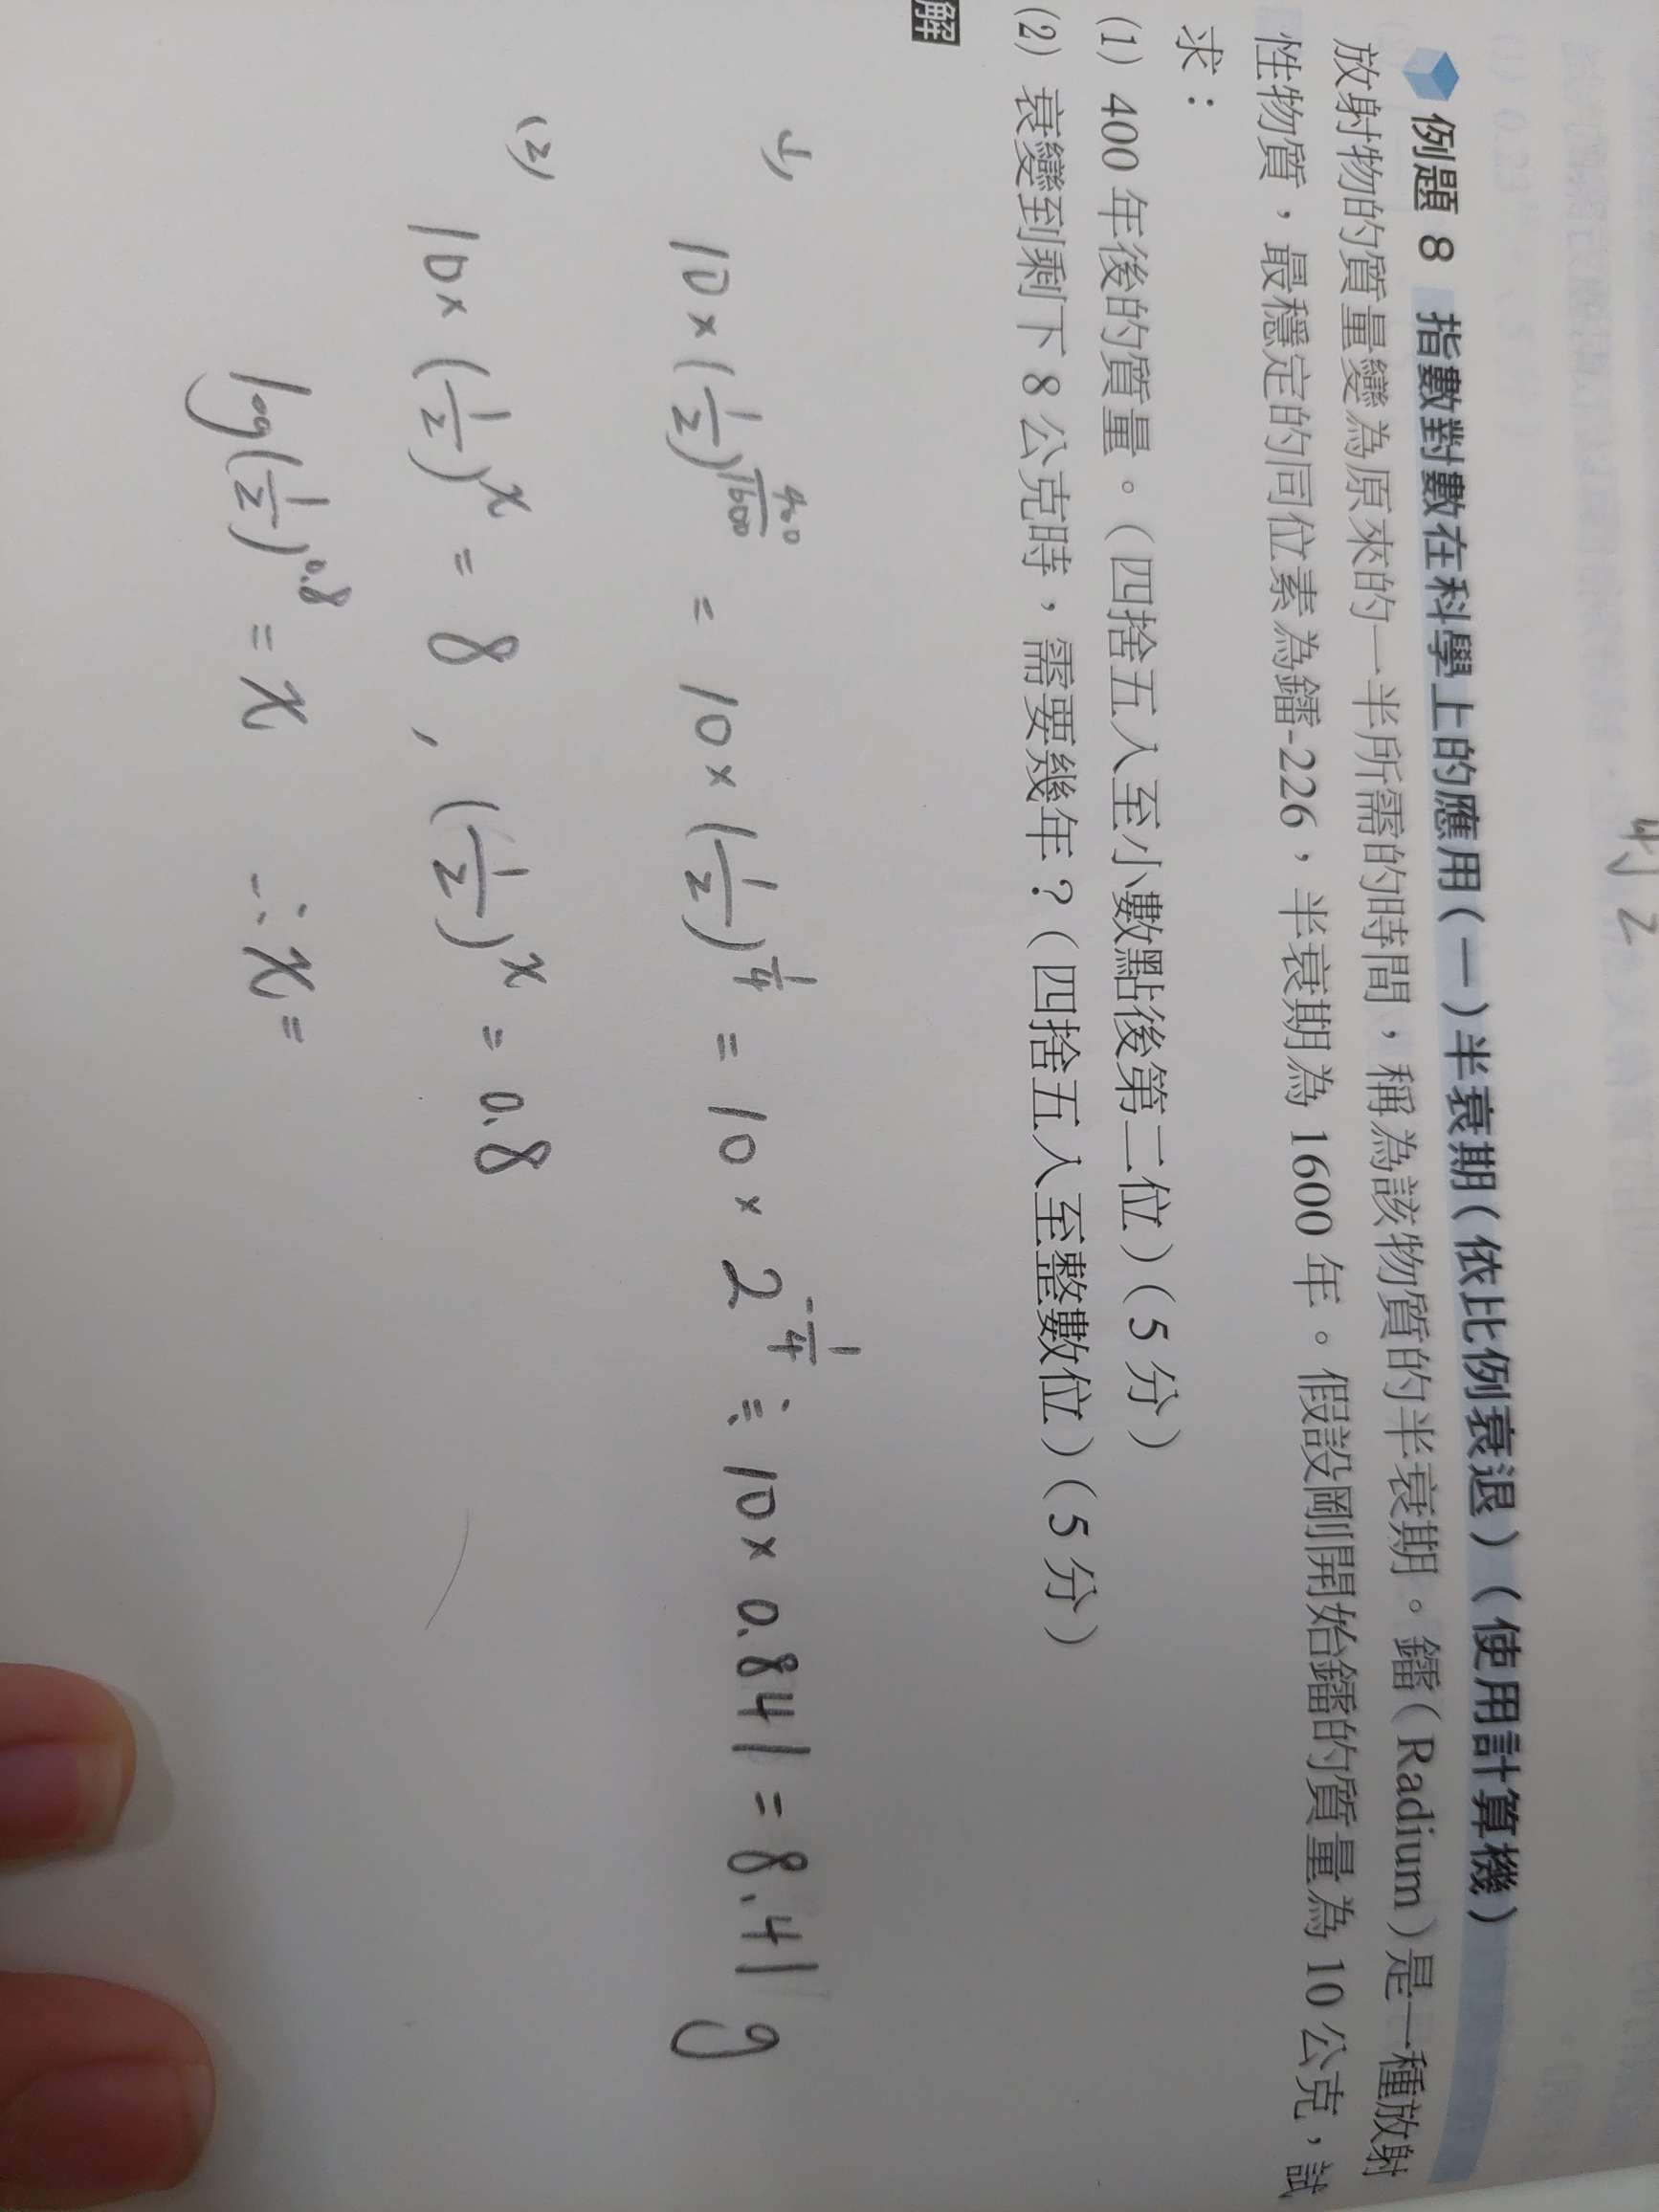 例題 8 指數對數在科學上的應用(一)半衰期(依比例衰退)(使用計算機)
放射物的質量變為原來的一半所需的時間,稱為該物質的半衰期。鐳(Radium)是一種放射
性物質,最穩定的同位素為鐳-226,半衰期為 1600 年。假設剛開始鐳的質量為 10 公克,試
求:
(1) 400 年後的質量。(四捨五入至小數點後第二位)(5 分)
(2) 衰變到剩下 8 公克時,需要幾年?(四捨五入至整數位)(5 分)
解
(1) 10×(1/2)^(400/1600) = 10×(1/2)^(1/4) = 10×2^(-1/4) ≒ 10×0.841 = 8.41 g
(2) 10×(1/2)^x = 8 , (1/2)^x = 0.8
log(1/2)^0.8 = x ∴x=